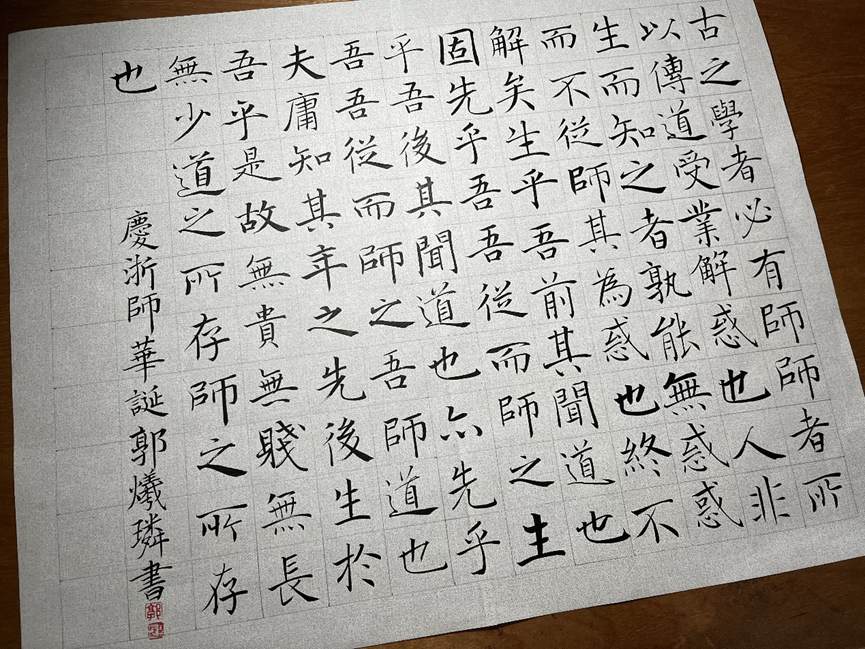 古之學者必有師師者所
以傳道受業解惑也人非
生而知之者孰能無惑惑
而不從師其為惑也終不
解矣生乎吾前其聞道也
固先乎吾吾從而師之生
乎吾後其聞道也亦先乎
吾吾從而師之吾師道也
夫庸知其年之先後生於
吾乎是故無貴無賤無長
無少道之所存師之所存
也
慶浙師華誕郭爔璘書